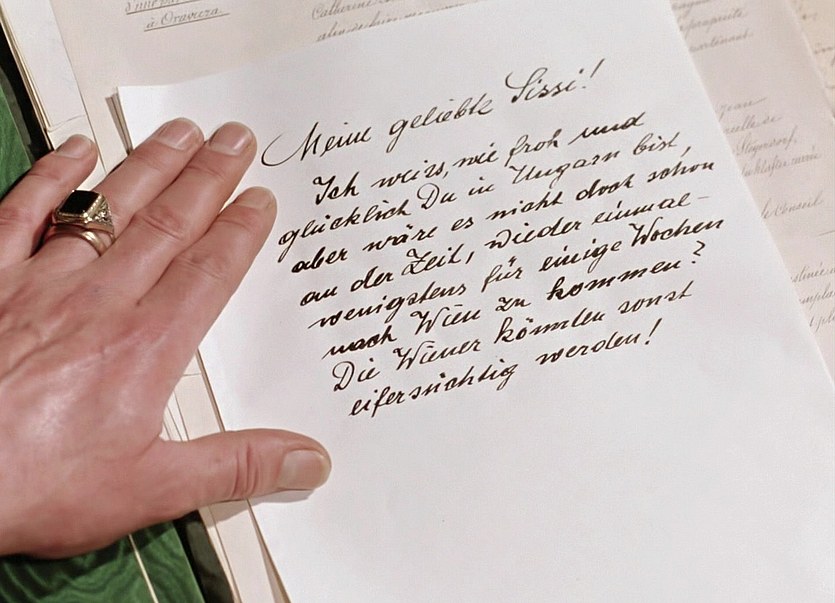 d'une pa
à Oravicza.
Catherine
Meine geliebte Sissi!
Ich weiss, wie froh und
glücklich Du in Ungarn bist,
aber wäre es nicht doch schon
an der Zeit, wieder einmal-
wenigstens für einige Wochen
nach Wien zu kommen?
Die Wiener könnten sonst
eifersüchtig werden!